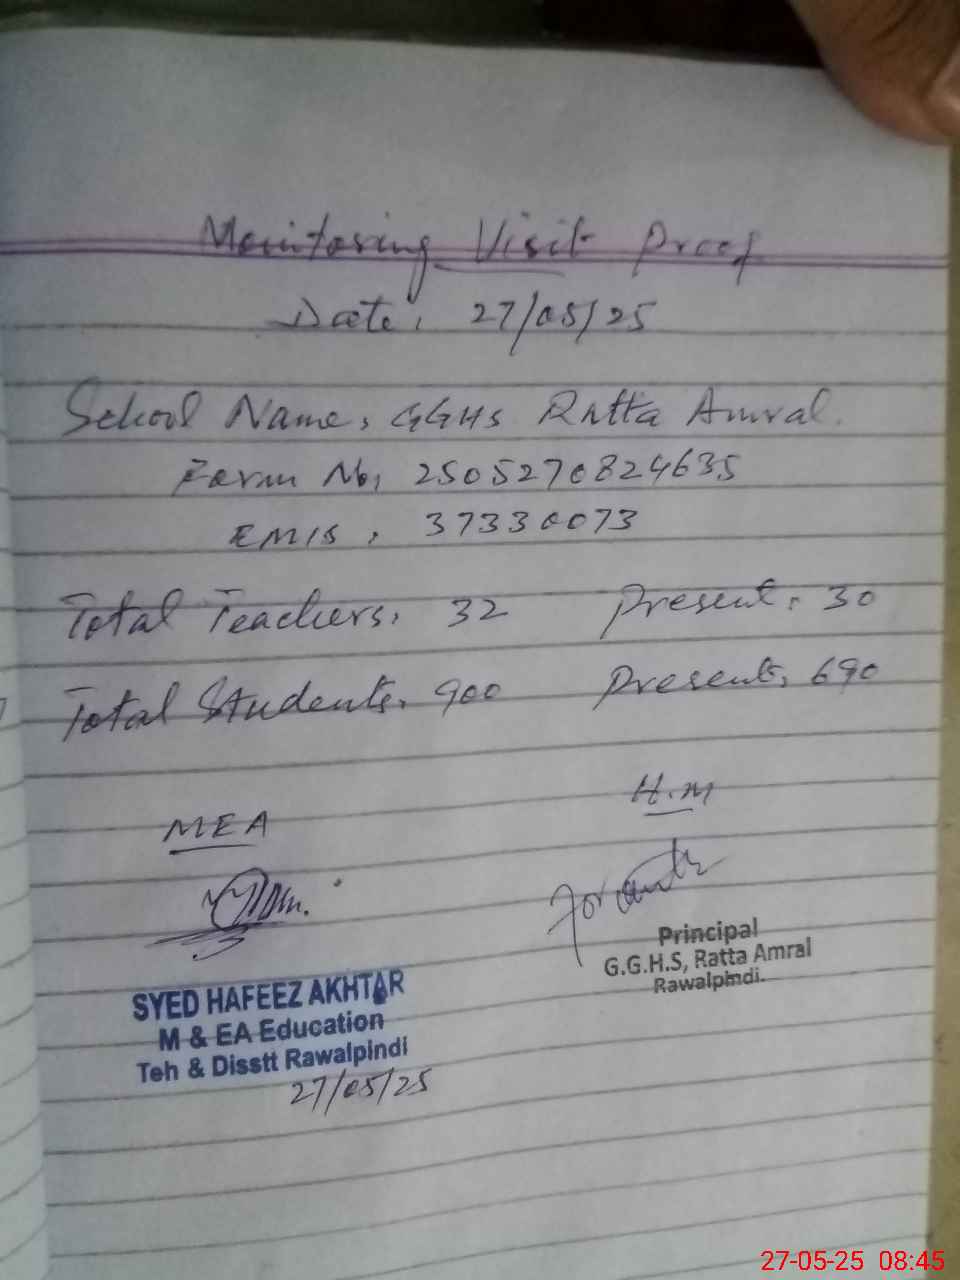 Monitoring Visit Proof
Date: 27/05/25
School Name: GGHS Ratta Amral.
Form No: 2505270824635
EMIS: 37330073
Total Teachers: 32 Present: 30
Total Students: 900 Present: 690
MEA
H.M
for
SYED HAFEEZ AKHTAR
M & EA Education
Teh & Disstt Rawalpindi
27/05/25
Principal
G.G.H.S, Ratta Amral
Rawalpindi.
27-05-25 08:45